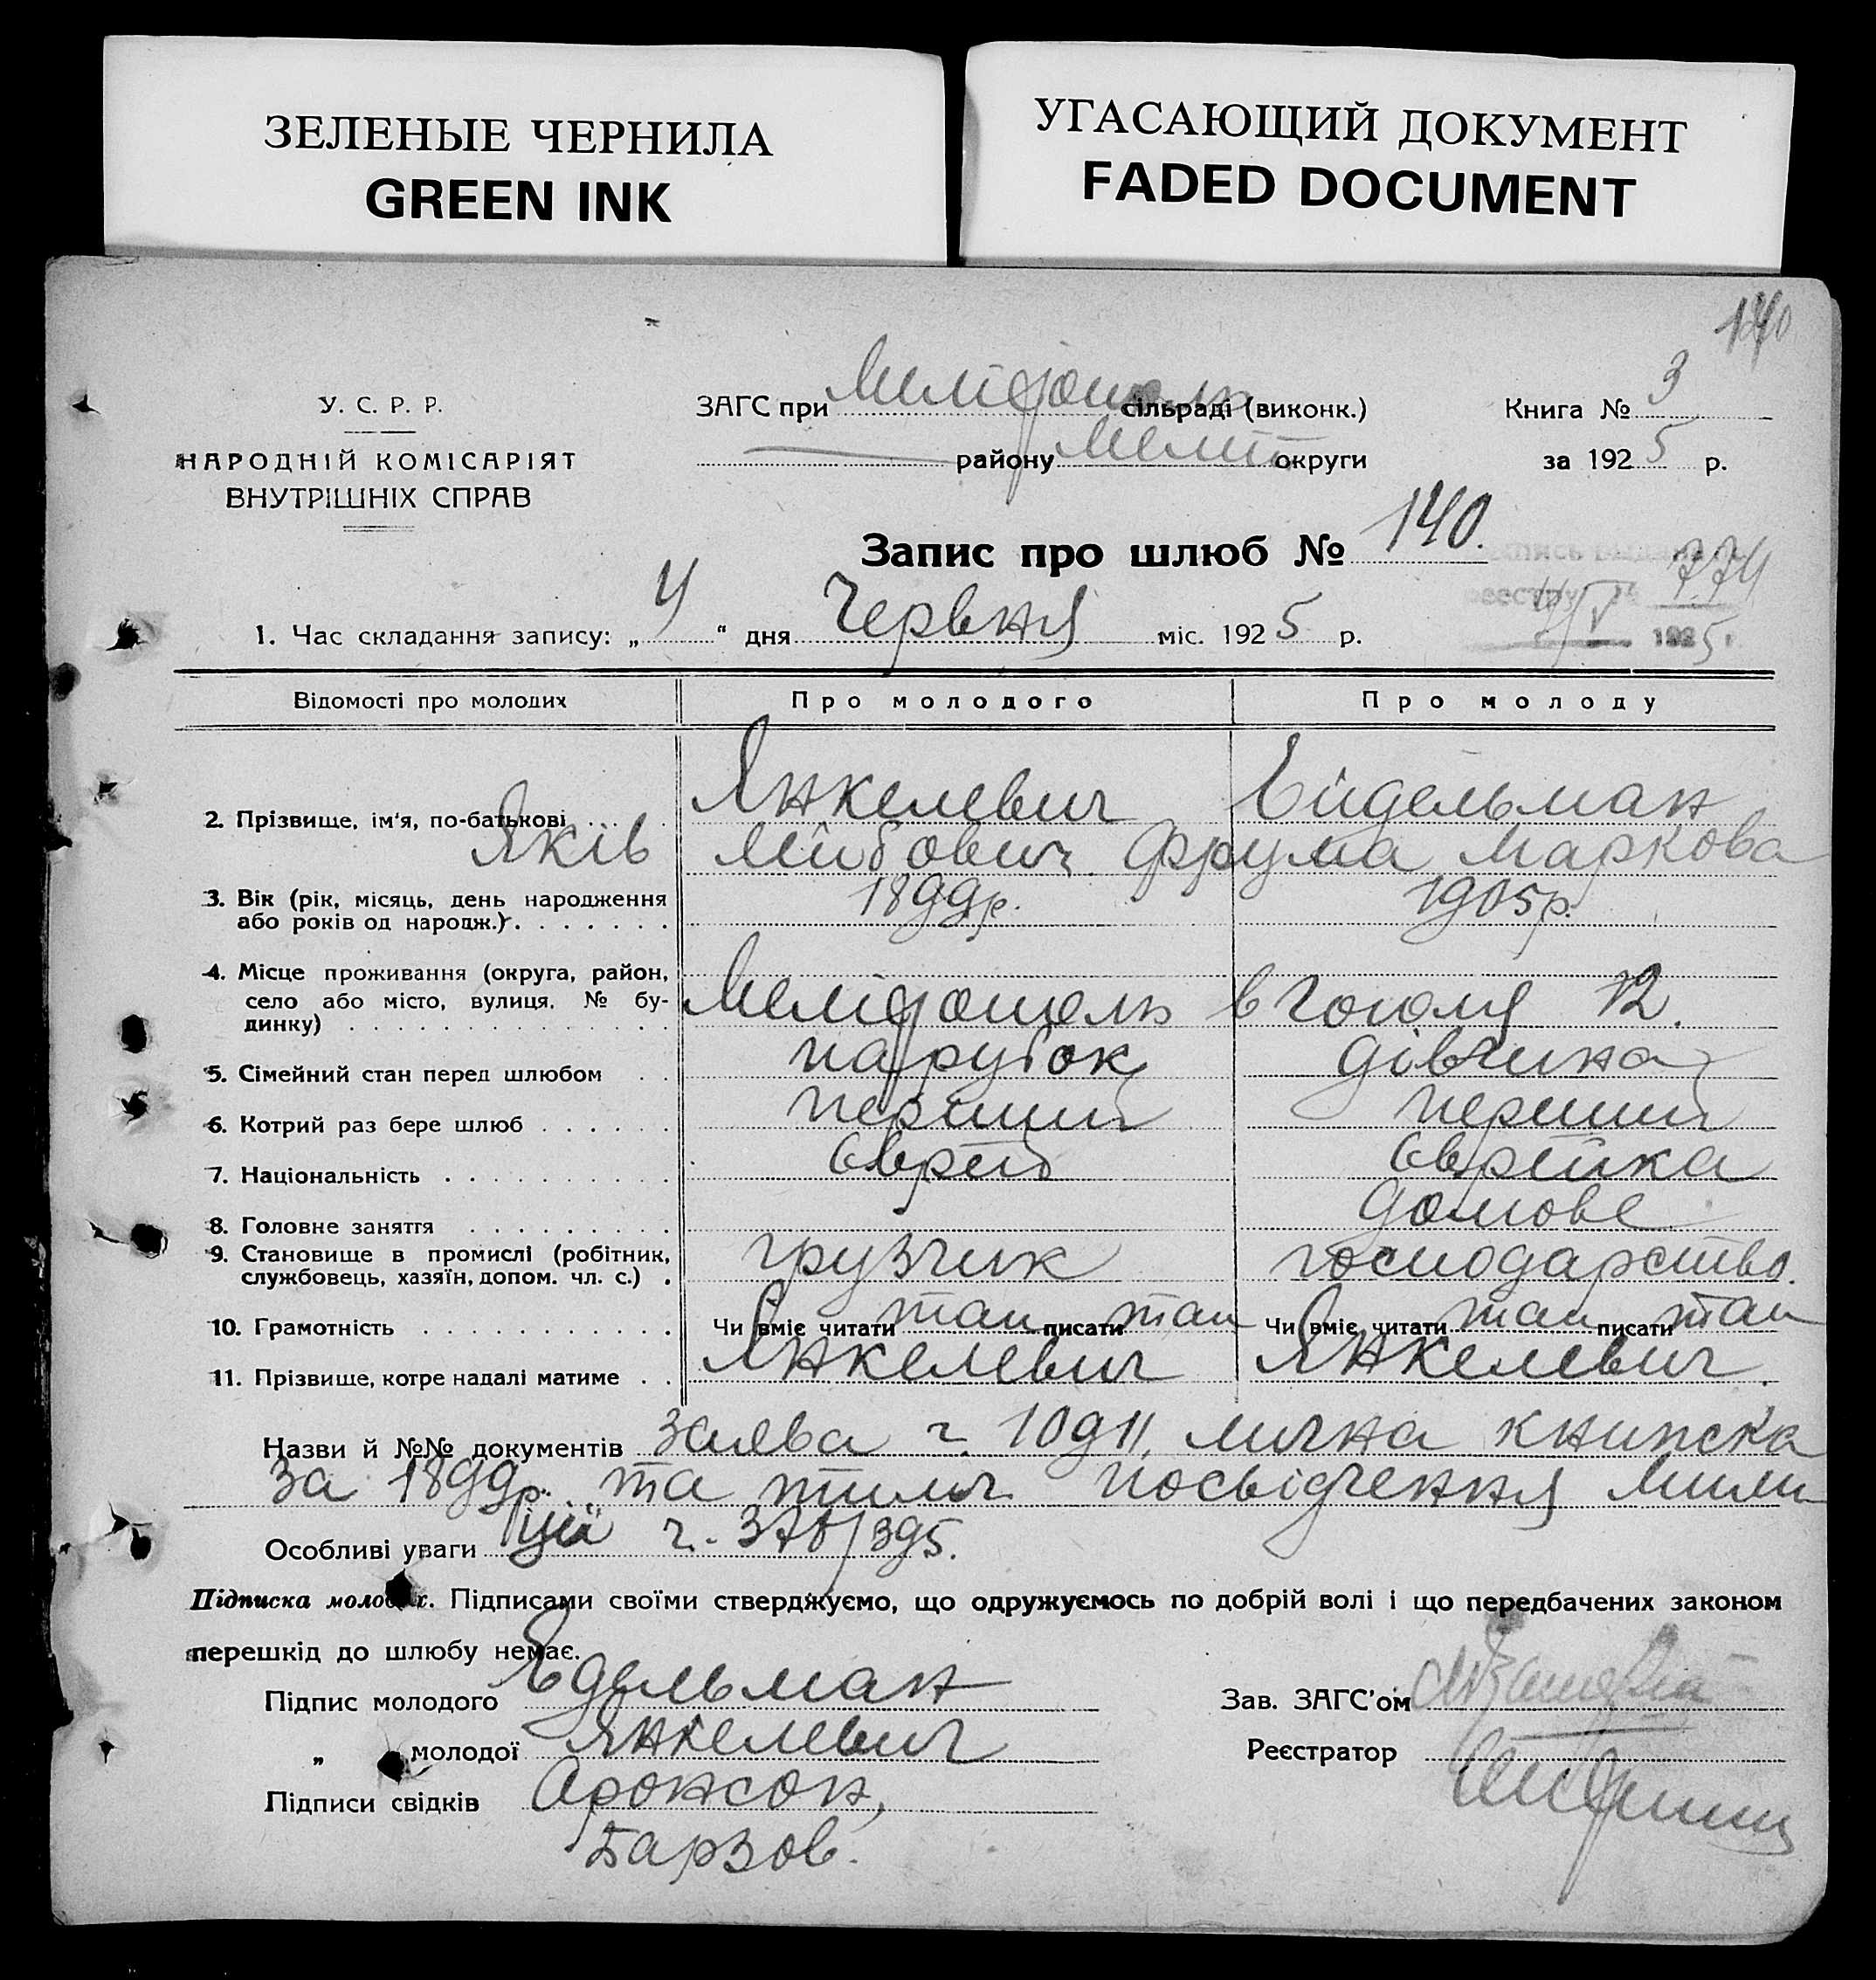 ЗЕЛЕНЫЕ ЧЕРНИЛА
GREEN INK
УГАСАЮЩИЙ ДОКУМЕНТ
FADED DOCUMENT
140
У. С. Р. Р.
НАРОДНІЙ КОМІСАРІЯТ
ВНУТРІШНІХ СПРАВ
ЗАГС при Мелітополь сільраді (виконк.)
району Меліт округи
Книга № 3
за 1925 р.
Запис про шлюб № 140.
774
1925
1. Час складання запису: „ 4 “ дня Червня міс. 1925 р.
Відомості про молодих Про молодого Про молоду
2. Прізвище, ім'я, по-батькові Янкелевич Ейдельман
Яків Лейбович Фрума Маркова
3. Вік (рік, місяць, день народження 1899р. 1905р.
або років од народж.)
4. Місце проживання (округа, район,
село або місто, вулиця, № бу- Мелітополь в Гоголя 12.
динку)
5. Сімейний стан перед шлюбом парубок дівчина
6. Котрий раз бере шлюб перший перший
7. Національність Єврей Єврейка
8. Головне заняття домове
9. Становище в промислі (робітник, грузчик господарство.
службовець, хазяїн, допом. чл. с.)
10. Грамотність Чи вміє читати так писати так Чи вміє читати так писати так
11. Прізвище, котре надалі матиме Янкелевич Янкелевич.
Назви й №№ документів заява ч. 10911, лична книжка
за 1899р. та тимч. посвідчення Мілі
Особливі уваги ції ч. 378/395.
Підписка молодих. Підписами своїми стверджуємо, що одружуємось по добрій волі і що передбачених законом
перешкід до шлюбу немає.
Підпис молодого Едельман
„ молодої Янкелевич
Підписи свідків Аронсон,
Барзов.
Зав. ЗАГС'ом
Реєстратор